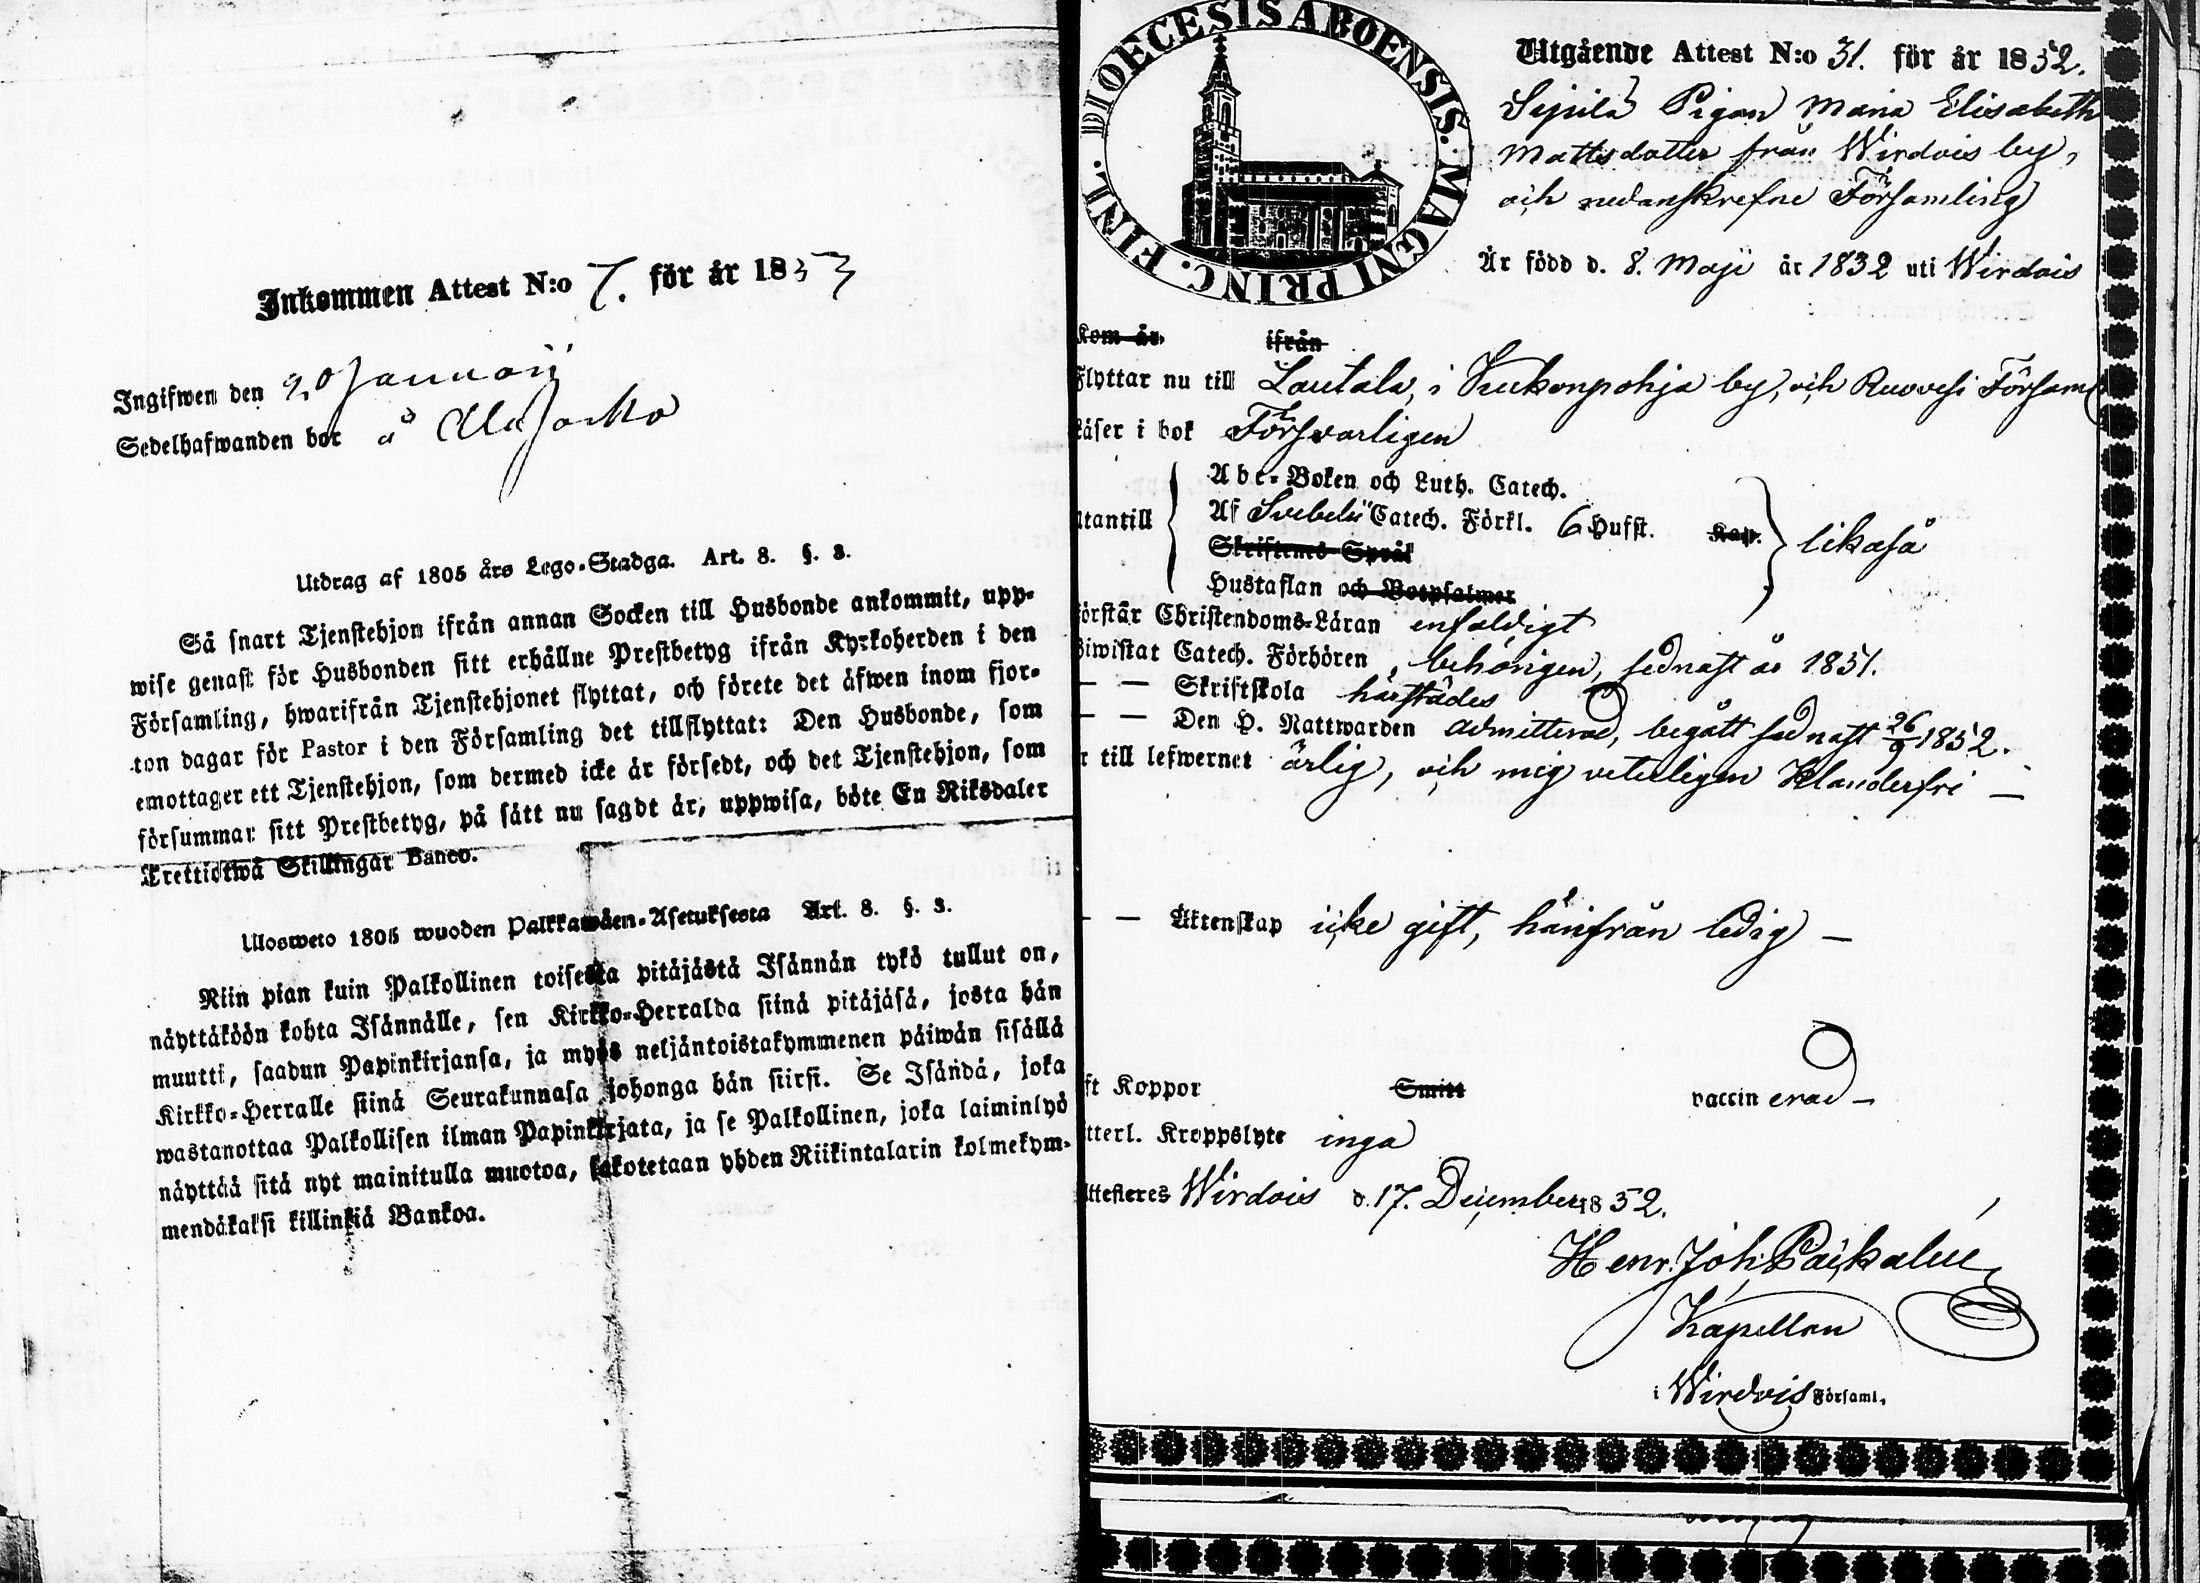 Inkommen Attest N:o 7. för år 1853
Ingifwen den 20 Januarii
Sedelhafwanden bor å
Utdrag af 1805 års Lego-Stadga. Art. 8. §. 3.
Så snart Tjenstehjon ifrån annan Socken till Husbonde ankommit, upp-
wise genast för Husbonden sitt erhållne Prestbetyg ifrån Kyrkoherden i den
Församling, hwarifrån Tjenstehjonet flyttat, och förete det äfwen inom fjor-
ton dagar för Pastor i den Församling det tillflyttat: Den Husbonde, som
emottager ett Tjenstehjon, som dermed icke är försedt, och det Tjenstehjon, som
försummar sitt Prestbetyg, på sätt nu sagdt är, uppwisa, böte En Riksdaler
Trettiotwå Skillingar Banco.
Ulosweto 1805 wuoden Palkkawäen-Asetuksesta Art. 8. §. 3.
Niin pian kuin Palkollinen toisesta pitäjästä Isännän tykö tullut on,
näyttäköön kohta Isännälle, sen Kirkko-Herralda siinä pitäjäsä, josta hän
muutti, saadun Papinkirjansa, ja myös neljäntoistakymmenen päiwän sisällä
Kirkko-Herralle siinä Seurakunnasa johonga hän siirsi. Se Isändä, joka
wastanottaa Palkollisen ilman Papinkirjata, ja se Palkollinen, joka laiminlyö
näyttää sitä nyt mainitulla muotoa, sakotetaan yhden Riikintalarin kolmekym-
mendäkaksi killinkiä Bankoa.
DIOECESIS ABOENSIS. MAGNI PRINC. FINL.
Utgående Attest N:o 31. för år 1852.
Sepilä Pigan Maria Elisabeth
Mattsdotter från Wirdois by,
och nedanskrefne Församling
Är född d. 8. Maji år 1832 uti Wirdois
Kom år ifrån
Flyttar nu till Lautala, i by, och Ruovesi Församl
Läser i bok Försvarligen
Abc-Boken och Luth. Catech.
Utantill Af Svebelii Catech. Förkl. 6 Hufst. Kap. likaså
Skriftenes Språk
Hustaflan och Botpsalmer
örstår Christendoms-Läran enfaldigt
Biwistat Catech. Förhören, behörigen, sednast år 1851.
— — Skriftskola härstädes
— — Den H. Nattwarden admitterad, begått sednast 26/9 1852.
r till lefwernet ärlig, och mig veterligen klanderfri —
— — Äktenskap icke gift, härifrån ledig —
ft Koppor Smitt vaccinerad —
tterl. Kroppslyte inga
ttesteres Wirdois d. 17. December 1852.
Henr. Joh.
Kapellan
i Wirdois Församl.